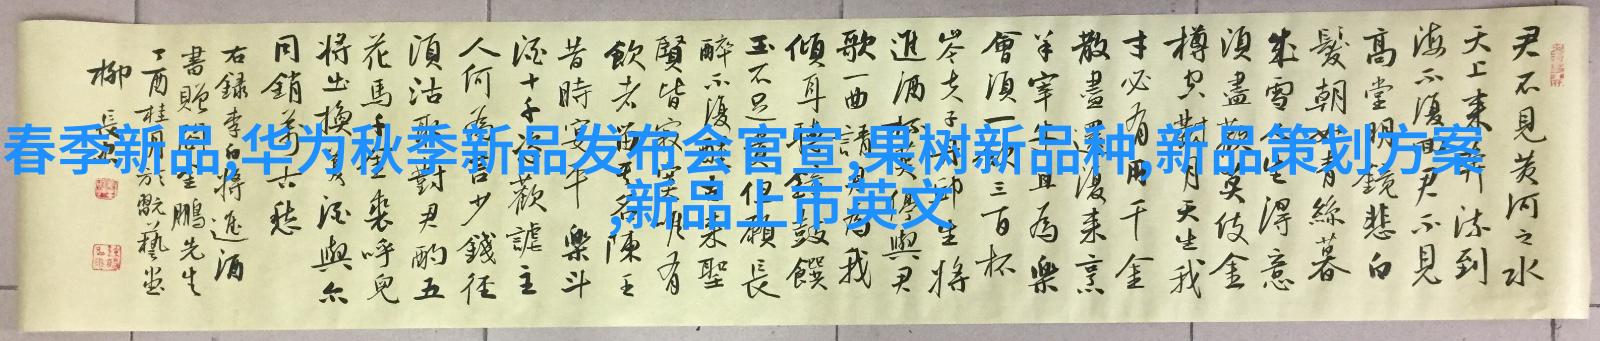 春季新品,华为秋季新品发布会官宣,果树新品种,新品策划方案
,新品上市英文
君不見黃河之水
天上来奔流到
海不復回君不見
高堂明鏡悲白
髮朝如青絲暮
成雪人生得意
須盡歡莫使金
樽空對月天生我
才必有用千金
散盡還復来烹
羊宰牛且為樂
會須一飲三百杯
岑夫子丹邱生將
進酒杯莫停與君
歌一曲請君為我
傾耳聽鐘鼓饌
玉不足貴但願長
醉不復醒古来聖
賢皆寂寞惟有
飲者留其名陳王
昔時宴平樂斗
酒十千恣歡謔主
人何為言少錢径
須沽取對君酌五
花馬千金裘呼兒
將出換美酒與尓
同銷萬古愁
右録李白將進酒
書贈生鵬先生
丁酉桂月於翫藝堂
柳長